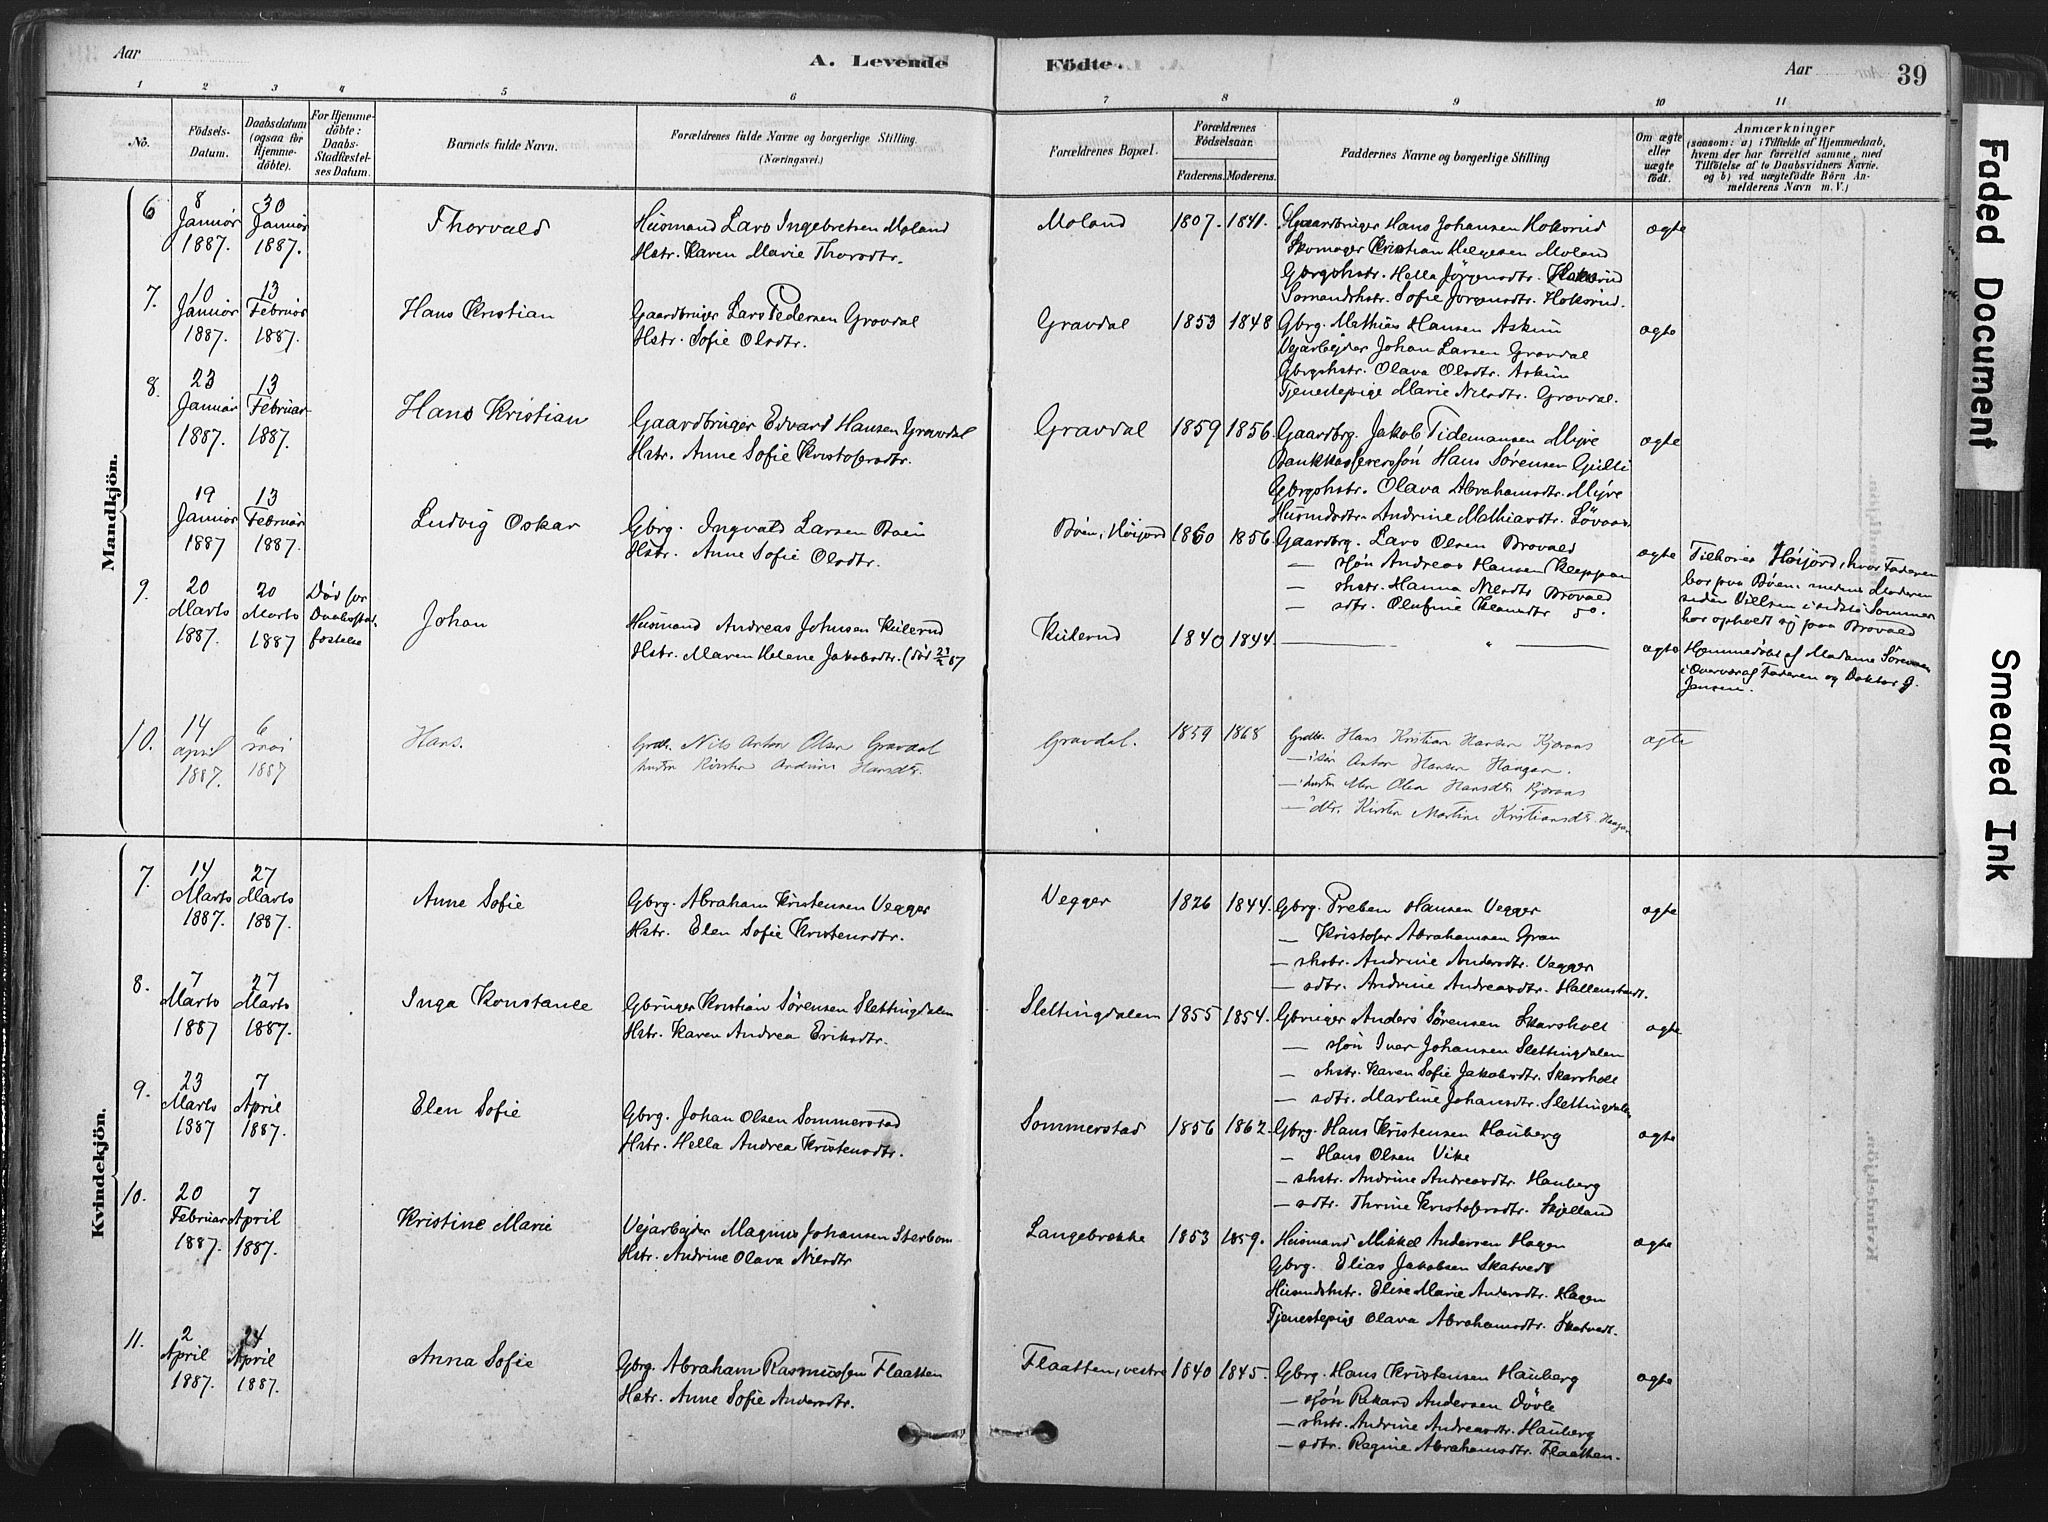 Aar
A. Levende
Födte.
Aar
39
1 2 3 4 5 6 7 8 9 10 11
No.
Födsels-Datum.
Daabsdatum (ogsaa for Hjemmedöbte).
For Hjemmedöbte: Daabs-Stadfæstelses Datum.
Barnets fulde Navn.
Forældrenes fulde Navne og borgerlige Stilling. (Næringsvei.)
Forældrenes Bopæl.
Forældrenes Födselsaar.
Faderens. Moderens.
Faddernes Navne og borgerlige Stilling
Om ægte eller uægte födt.
Anmærkninger
(saasom: a) i Tilfælde af Hjemmedaab, hvem der har forrettet samme, med Tilföielse af to Daabsvidners Navne, og b) ved uægtefödte Börn Anmelderens Navn m. V.)
Mandkjön.
6 8 Januar 1887. 30 Januar 1887.
Thorvald
Husmand Lars Ingebretsen Moland
Hstr. Karen Marie Thorsdtr.
Moland 1807. 1841.
Gaardbruger Hans Johansen Hoksrud
Skomager Kristian Helgesen Moland
Gbrgshstr. Hella Jörgensdtr. Hoksrud
Sømandshstr. Sofie Jörgensdtr. Hoksrud.
ægte
7. 10 Januar 1887. 13 Februar 1887.
Hans Kristian
Gaardbruger Lars Pedersen Gravdal
Hstr. Sofie Olsdtr.
Gravdal 1853 1848
Gbrg. Mathias Hansen Askum
Vejarbejder Johan Larsen Gravdal
Gbrgshstr. Olava Olsdtr. Askum
Tjenestepige Marie Nilsdtr. Gravdal.
ægte
8. 23 Januar 1887. 13 Februar 1887.
Hans Kristian
Gaardbruger Edvard Hansen Gravdal
Hstr. Anne Sofie Kristofersdtr.
Gravdal 1859 1856.
Gaardbrg. Jakob Tidemansen Myre
Bankkasserersön Hans Sørensen Gulli
Gbrgshstr. Olava Abrahamsdtr. Myre
Husmdsdtr. Andrine Mathiasdtr. Løvaas
ægte
19 Januar 1887 13 Februar 1887.
Ludvig Oskar
Gbrg. Ingvald Larsen Bøen
Hstr. Anne Sofie Olsdtr.
Bøen, Høijord 1860 1856.
Gaardbrg. Lars Olsen Brovald
— sön Andreas Hansen Kleppan
— shstr. Hanna Nilsdtr Brovald
— sdtr. Olufine Klausdtr do.
ægte
Tilhører Høijord, hvor Faderen
bor paa Bøen, medens Moderen
siden Vielsen i sidste Sommer
har opholdt sig paa Brovald
9. 20 Marts 1887. 20 Marts 1887
Död før Daabsstadfæstelse
Johan
Husmand Andreas Johnsen Kulerud
Hstr. Maren Helene Jakobsdtr. (död
Kulerud 1840 1844.
— " —
ægte
Hjemmedøbt af Madame Sørensen
i Overvær af Faderen og Doktor G.
Jansen.
10. 14 april 1887. 6 mai 1887
Hans.
Grdbr. Nils Anton Olsen Gravdal
hustru Kirsten Andrine Hansdtr.
Gravdal. 1859 1868
Grdbr. Hans Kristian Hansen Kjøraas
— søn Anton Hansen Haugan.
— hustru Olea Hansdtr Kjøraas
— dtr. Kirsten Martine Kristiansdtr. Haugan
ægte
Kvindekjön.
7. 14 Marts 1887. 27 Marts 1887.
Anne Sofie
Gbrg. Abraham Kristensen Vegger
Hstr. Elen Sofie Kristensdtr.
Vegger 1826 1844.
Gbrg. Preben Hansen Vegger
— Kristofer Abrahamsen Gran
— shstr. Andrine Andersdtr. Vegger
— sdtr. Andrine Andreasdtr. Hallenstvedt.
ægte
8. 7 Marts 1887 27 Marts 1887.
Inga Konstance
Gbruger Kristian Sørensen Slettingdalen
Hstr. Karen Andrea Eriksdtr.
Slettingdalen 1855 1854.
Gbruger Anders Sørensen Skarsholt
— sön Iver Johansen Slettingdalen
— shstr. Karen Sofie Jakobsdtr. Skarsholt
— sdtr. Martine Johansdtr. Slettingdalen
ægte
9. 23 Marts 1887 7 April 1887.
Elen Sofie
Gbrg. Johan Olsen Sommerstad
Hstr. Hella Andrea Kristensdtr.
Sommerstad 1856 1862.
Gbrg. Hans Kristensen Hauberg
— Hans Olsen Vike
— shstr. Andrine Andreasdtr. Hauberg
— sdtr. Thrine Kristofersdtr. Skjelland
ægte
10. 20 Februar 1887. 7 April 1887.
Kristine Marie
Vejarbejder Magnus Johansen Sterbom
Hstr. Andrine Olava Nilsdtr
Langebrekke 1853 1859.
Husmand Mikkel Andersen Hagen
Gbrg. Elias Jakobsen Skatvedt
Husmdshstr. Elise Marie Andersdtr. Hagen
Tjenestepige Olava Abrahamsdtr. Skatvedt.
ægte
11. 2 April 1887. 24 April 1887.
Anna Sofie
Gbrg. Abraham Rasmussen Flaatten
Hstr. Anne Sofie Andersdtr.
Flaatten, vestre 1840 1845.
Gbrg. Hans Kristensen Hauberg
— sön Rikard Andersen Døvle
— shstr. Andrine Andreasdtr. Hauberg
— sdtr. Ragine Abrahamsdtr. Flaatten.
ægte
Faded Document
Smeared Ink